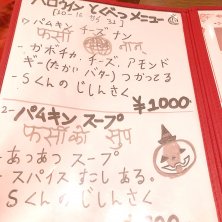 ハロウィン とくべつ メニュー
パムキン チーズ ナン
फर्सी चिज नान
- カボチャ、チーズ、アモンド
ギー(たかい バター) つかってる
- Sくんの じしんさく
¥1000
2- パムキン スープ
फर्सीको सुप
- あつあつ スープ
- スパイス すこし ある。
Sくんの じしんさく